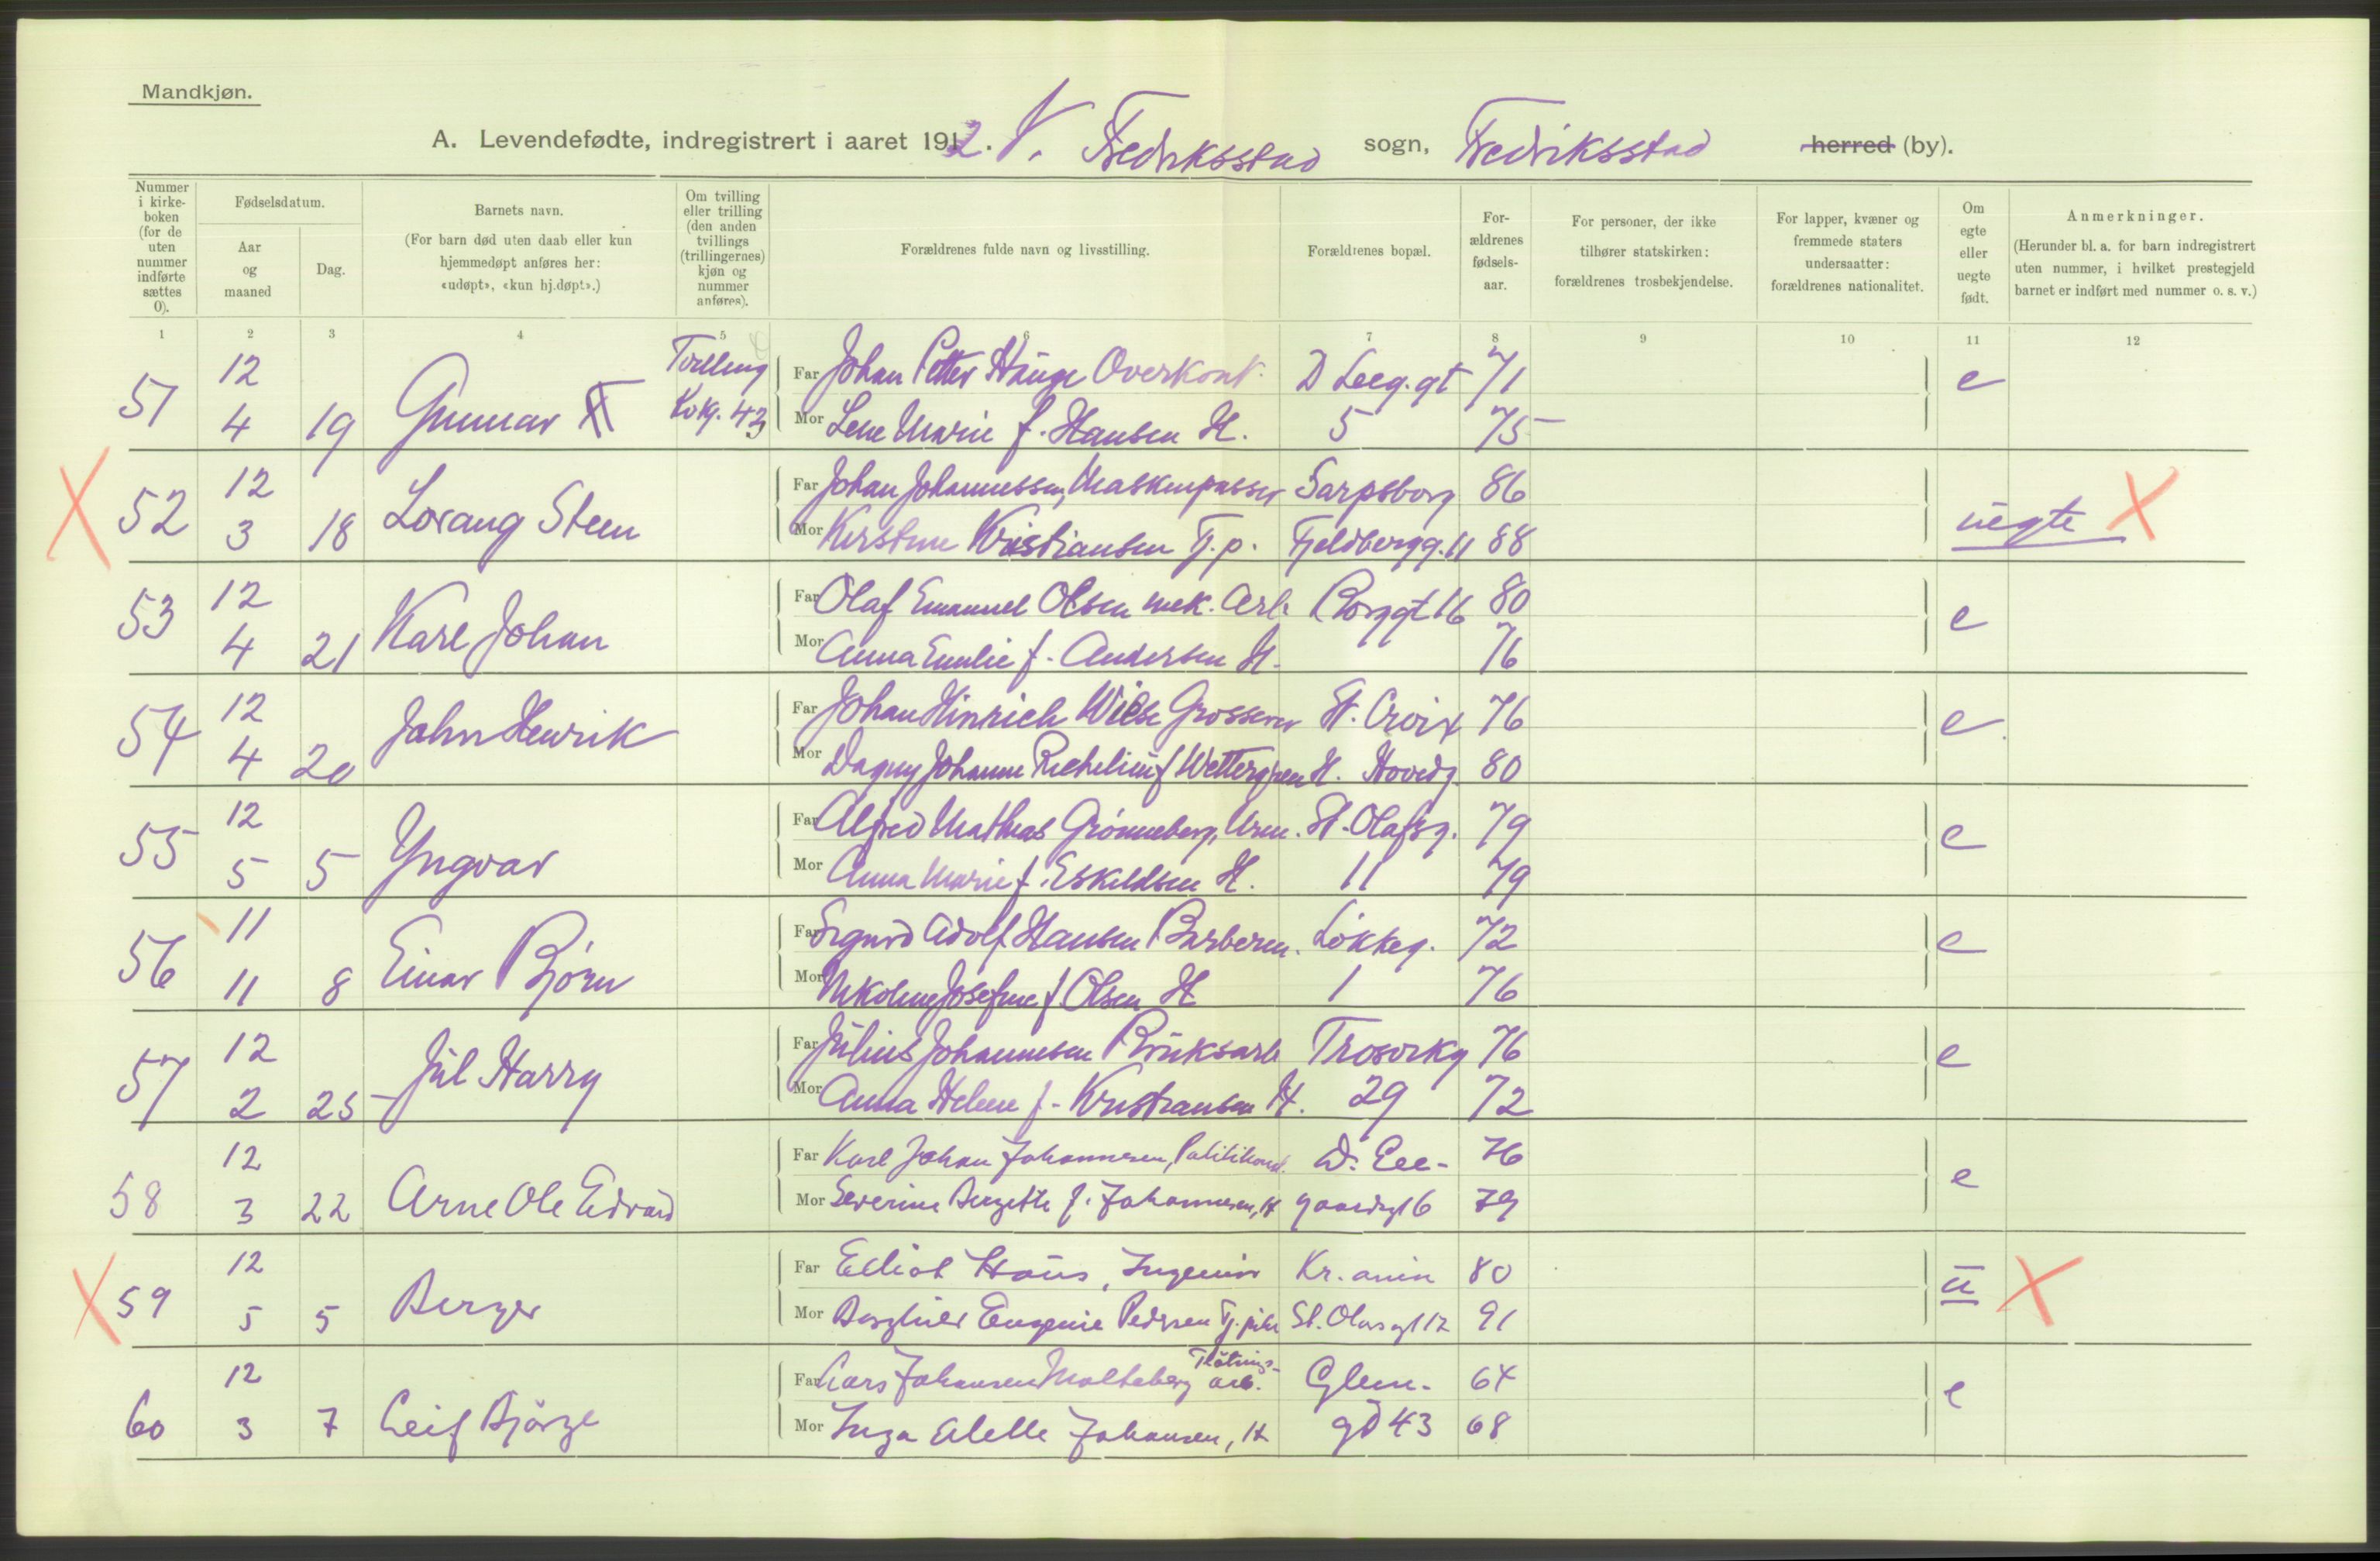 Mandkjøn.
A. Levendefødte, indregistrert i aaret 1912. V. Fredriksstad sogn, Fredriksstad herred (by).
Nummer i kirke-boken (for de uten nummer indførte sættes 0).
Fødselsdatum.
Aar og maaned
Dag.
Barnets navn.
(For barn død uten daab eller kun hjemmedøpt anføres her: «udøpt», «kun hj.døpt».)
Om tvilling eller trilling (den anden tvillings (trillingernes) kjøn og nummer anføres).
Forældrenes fulde navn og livsstilling.
Forældrenes bopæl.
For-ældrenes fødsels-aar.
For personer, der ikke tilhører statskirken: forældrenes trosbekjendelse.
For lapper, kvæner og fremmede staters undersaatter: forældrenes nationalitet.
Om egte eller uegte født.
Anmerkninger.
(Herunder bl. a. for barn indregistrert uten nummer, i hvilket prestegjeld barnet er indført med nummer o. s. v.)
1 2 3 4 5 6 7 8 9 10 11 12
51 12 Gunnar Tvilling Far Johan Petter Hauge Overkont. D Leeg.gt 71 e
4 19 Kvkj. 43 Mor Lene Marie f. Hansen H. 5 75
52 12 Lorang Steen Far Johan Johannessen, Maskinpasser Sarpsborg 86 uegte
3 18 Mor Kirstine Kristiansen Tj.p. Fjeldbergg. 11 88
53 12 Karl Johan Far Olaf Emanuel Olsen mek. Arb. Borggt 16 80 e
4 21 Mor Anna Emilie f. Andersen H. 76
54 12 John Henrik Far Johan Hinrich Wiese Grosserer St. Croix 76 e
4 20 Mor Dagny Johanne Richelieu f Wettergren H. Hovedg. 80
55 12 Yngvar Far Alfred Mathias Grönneberg, Urm. St. Olafsg. 79 e
5 5 Mor Anna Marie f. Eskildsen H. 11 79
56 11 Einar Bjørn Far Sigurd Adolf Hansen Barberm. Løkkeg. 72 e
11 8 Mor Nikoline Josefine f. Olsen H 1 76
57 12 Jul Harry Far Julius Johannesen Bruksarb Trosvikg 76 e
2 25 Mor Anna Helene f. Kristiansen H. 29 72
58 12 Arne Ole Edvard Far Karl Johan Johannesen, Politikonst. D. Lee- 76 e
3 22 Mor Severine Bergitte f. Johannesen, H gaardsgt 6 79
59 12 Berger Far Elliot Haus, Ingeniør Kr.ania 80 u
5 5 Mor Borghild Eugenie Pedersen Tj.pike St. Olavsgt 12 91
60 12 Leif Bjørge Far Lars Johansen Molteberg Fløtnings-arb. Glem- 64 e
3 7 Mor Inga Elelle Johansen, H gd 43 68